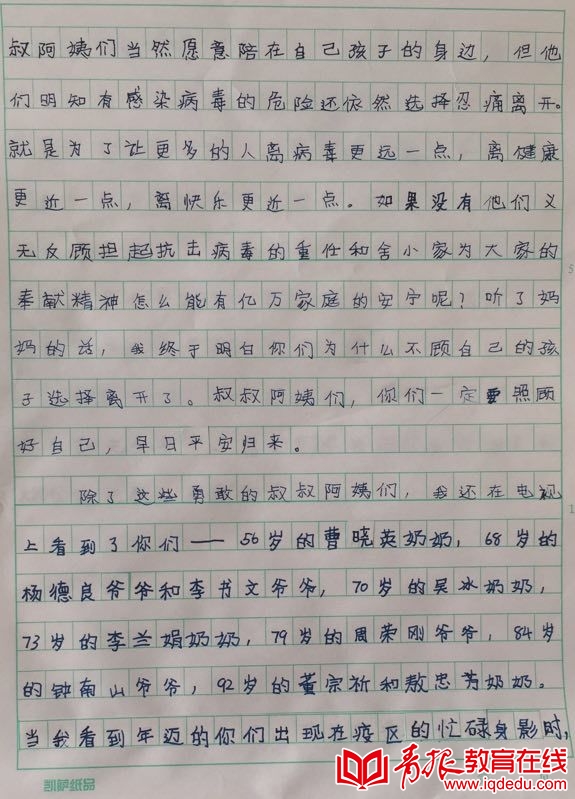 叔阿姨们当然愿意陪在自己孩子的身边，但他
们明知有感染病毒的危险还依然选择忍痛离开。
就是为了让更多的人离病毒更远一点，离健康
更近一点，离快乐更近一点。如果没有他们义
无反顾担起抗击病毒的重任和舍小家为大家的
奉献精神怎么能有亿万家庭的安宁呢？听了妈
妈的话，我终于明白你们为什么不顾自己的孩
子选择离开了。叔叔阿姨们，你们一定要照顾
好自己，早日平安归来。
除了这些勇敢的叔叔阿姨们，我还在电视
上看到了你们——56岁的曹晓英奶奶，68岁的
杨德良爷爷和李书文爷爷，70岁的吴冰奶奶，
73岁的李兰娟奶奶，79岁的周荣刚爷爷，84岁
的钟南山爷爷，92岁的董宗祈和敖忠芳奶奶。
当我看到年迈的你们出现在疫区的忙碌身影时，
凯萨纸品
青报教育在线
www.iqdedu.com
5
1